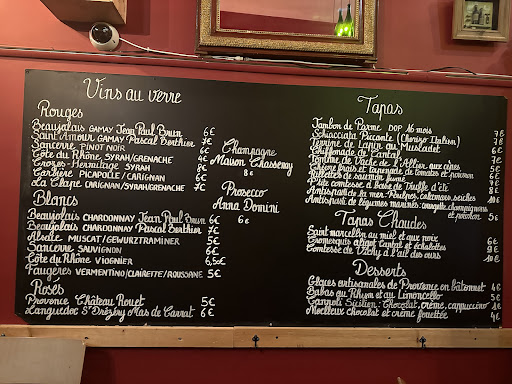 Vins au verre
Rouges
Beaujolais GAMAY Jean Paul Brun 6€
Saint Amour GAMAY Pascal Berthier 7€
Sancerre PINOT NOIR 6€
Côte du Rhône SYRAH/GRENACHE 4€
Crozes-Hermitage SYRAH 8€
Corbière PICAPOLLE/CARIGNAN 6€
La Clape CARIGNAN/SYRAH/GRENACHE 7€
Blancs
Beaujolais CHARDONNAY Jean Paul Brun 6€
Beaujolais CHARDONNAY Pascal Berthier 7€
Alsace MUSCAT/GEWURZTRAMINER 5€
Sancerre SAUVIGNON 6€
Côte du Rhône VIOGNIER 6,5€
Faugères VERMENTINO/CLAIRETTE/ROUSSANE 5€
Rosés
Provence Château Rouet 5€
Languedoc St Drézéry Mas de Carrat 6€
Champagne
Maison Chassenay
8€
Prosecco
Anna Domini
6€
Tapas
Jambon de Parme DOP 16 mois 7€
Schiacciata Piccante (Chorizo Italien) 7€
Terrine de Lapin au Muscadet 6€
Chiffonade de Cantal
Tomme de Vache de l'Allier aux cèpes
Chèvre frais et tapenade de tomates et poivrons
Rillettes de saumon fumé
P'tite comtesse à base de Truffe d'été
Antipasti de la mer: Poulpes, calamars, seiches
Antipasti de légumes marinés: courgette, champignons
et poivron 5€
Tapas Chaudes
Saint marcellin au miel et aux noix 6€
Cromesquis aligot Cantal et échalottes 9€
Comtesse de Vichy à l'ail des ours 10€
Desserts
Glaces artisanales de Provence en bâtonnet 4€
Babas au Rhum et au Limoncello 5€
Cannoli Sicilien: Chocolat, crème, cappuccino
Moelleux chocolat et crème fouettée 4€